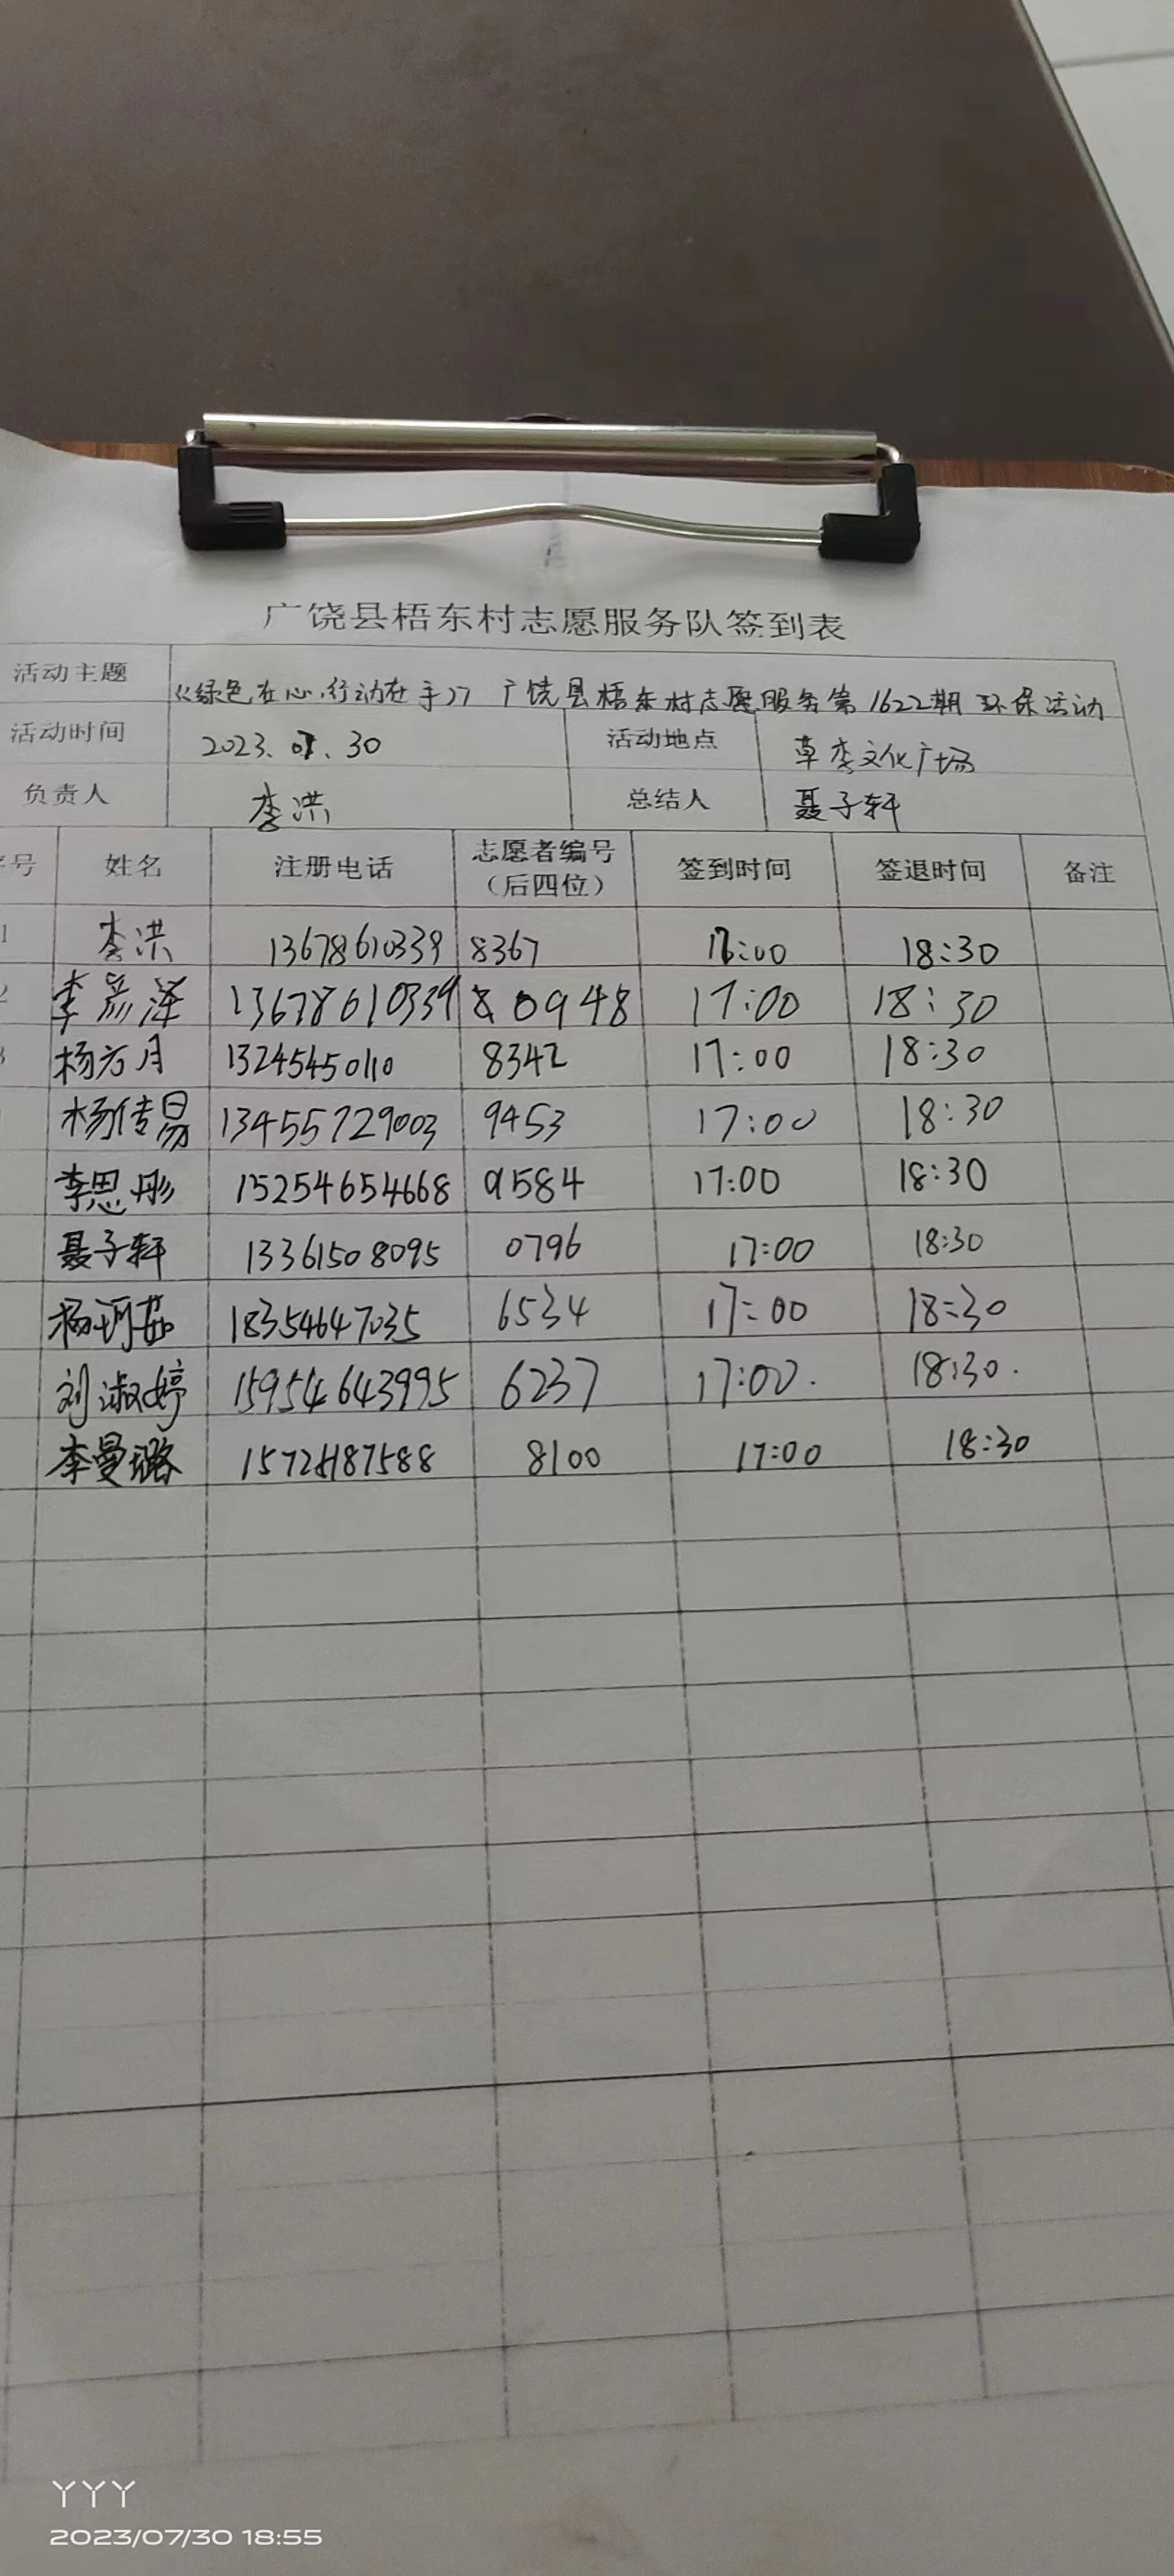 广饶县梧东村志愿服务队签到表
活动主题 《绿色在心,行动在手》 广饶县梧东村志愿服务第1622期环保活动
活动时间 2023.07.30 活动地点 草李文化广场
负责人 李洪 总结人 聂子轩
序号 姓名 注册电话 志愿者编号(后四位) 签到时间 签退时间 备注
1 李洪 13678610339 8367 18:30
2 李彦泽 13678610339 80948 17:00 18:30
3 杨方月 13245450110 8342 17:00 18:30
杨传昜 13455729003 9453 17:00 18:30
李思彤 15254654668 9584 17:00 18:30
聂子轩 13361508095 0796 17:00 18:30
杨珂茹 18354647035 6534 17:00 18:30
刘淑婷 15954643995 6237 17:00. 18:30.
李曼璐 8100 17:00 18:30
YYY
2023/07/30 18:55